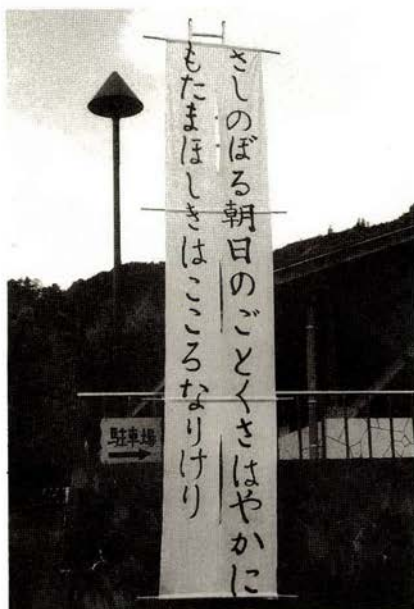 さしのぼる朝日のごとくさはやかに
もたまほしきはこころなりけり
駐車場